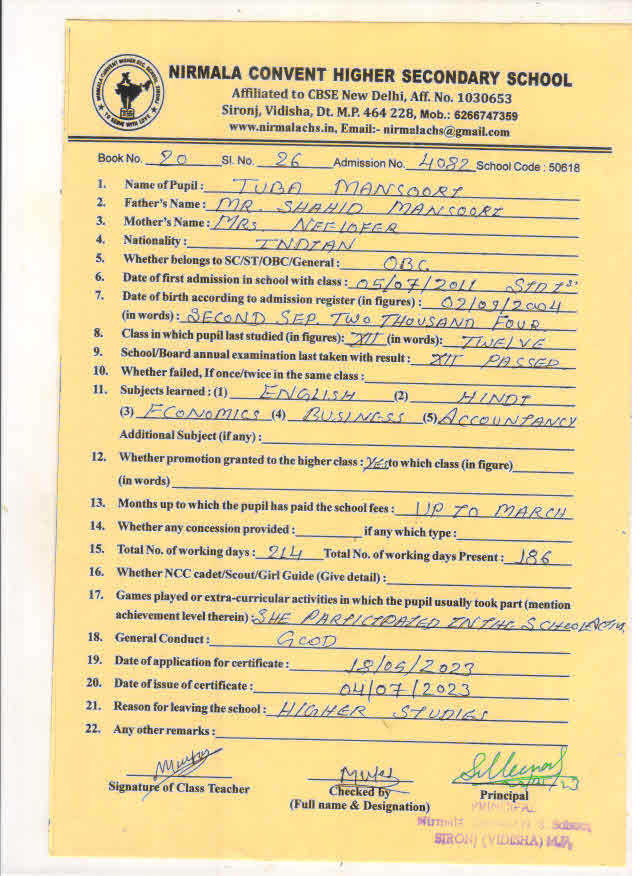 NIRMALA CONVENT HIGHER SECONDARY SCHOOL
Affiliated to CBSE New Delhi, Aff. No. 1030653
Sironj, Vidisha, Dt. M.P. 464 228, Mob.: 6266747359
www.nirmalachs.in, Email:- nirmalachs@gmail.com
Book No. 20 Sl. No. 26 Admission No. 4082 School Code : 50618
1. Name of Pupil : TUBA MANSOORI
2. Father's Name : MR. SHAHID MANSOORI
3. Mother's Name : MRS. NEELOFER
4. Nationality : INDIAN
5. Whether belongs to SC/ST/OBC/General : OBC
6. Date of first admission in school with class : 05/07/2011 STD 1st
7. Date of birth according to admission register (in figures) : 02/09/2004
(in words) : SECOND SEP. TWO THOUSAND FOUR.
8. Class in which pupil last studied (in figures): XII (in words): TWELVE
9. School/Board annual examination last taken with result : XII PASSED
10. Whether failed, If once/twice in the same class :
11. Subjects learned : (1) ENGLISH (2) HINDI
(3) ECONOMICS (4) BUSINESS (5) ACCOUNTANCY
Additional Subject (if any) :
12. Whether promotion granted to the higher class : Yes to which class (in figure)
(in words)
13. Months up to which the pupil has paid the school fees : UP TO MARCH
14. Whether any concession provided : if any which type :
15. Total No. of working days : 214 Total No. of working days Present : 186
16. Whether NCC cadet/Scout/Girl Guide (Give detail) :
17. Games played or extra-curricular activities in which the pupil usually took part (mention
achievement level therein) : SHE PARTICIPATED IN THE SCHOOL
18. General Conduct : GOOD
19. Date of application for certificate : 18/05/2023
20. Date of issue of certificate : 04/07/2023
21. Reason for leaving the school : HIGHER STUDIES
22. Any other remarks :
Signature of Class Teacher
Checked by
(Full name & Designation)
Principal
PRINCIPAL
SIRONJ (VIDISHA) M.P.